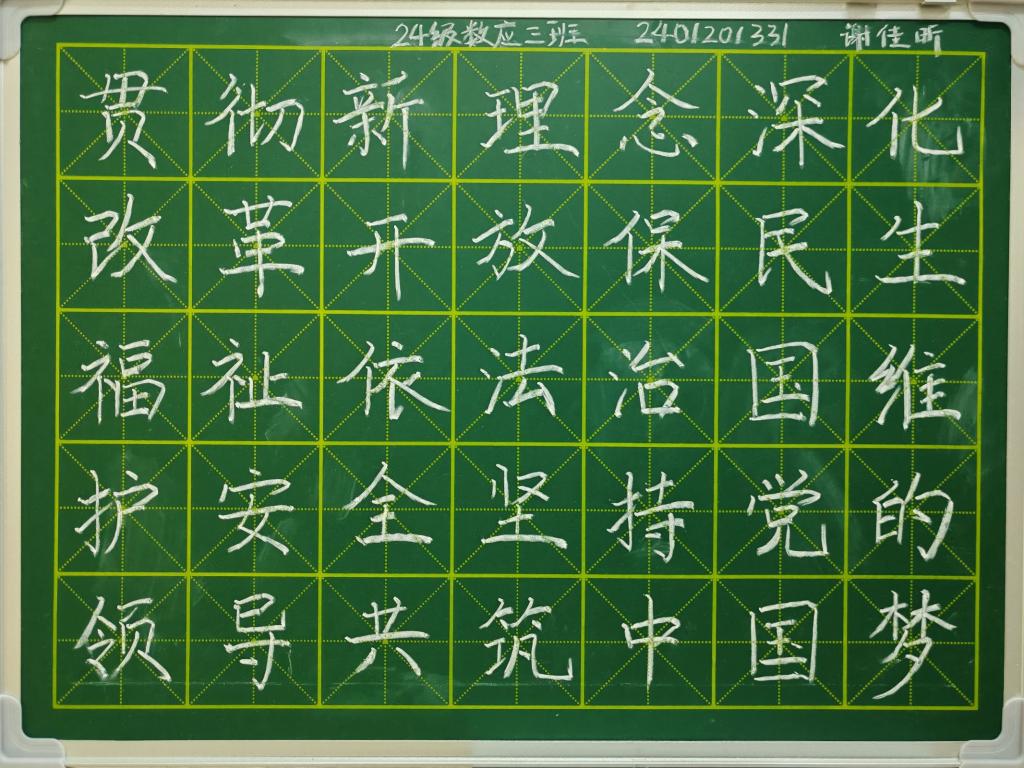 24级数应三班 2401201331 谢佳昕
贯彻新理念深化
改革开放保民生
福祉依法治国维
护安全坚持党的
领导共筑中国梦